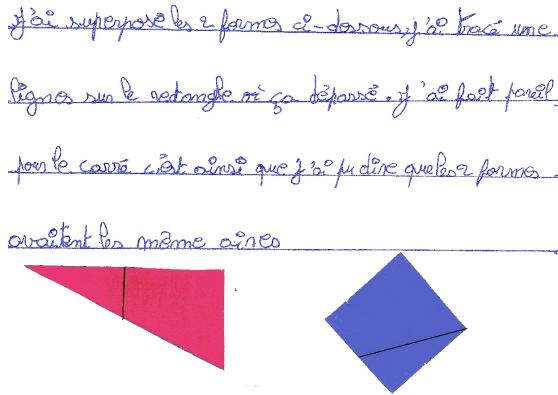 j'ai superposé les 2 formes ci-dessous, j'ai tracé une
lignes sur le rectangle où ça dépassé. j'ai fait pareil
pour le carré c'est ainsi que j'ai pu dire que les 2 formes
avaitent les même aires